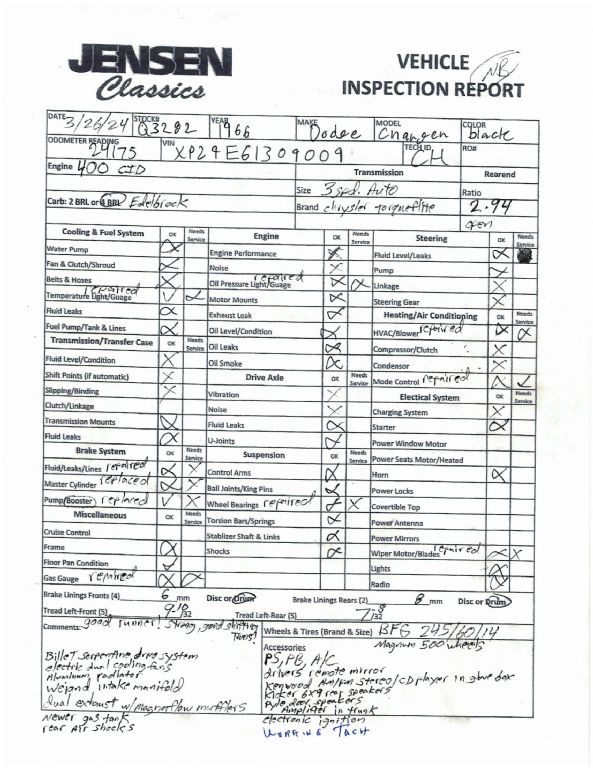 JENSEN
Classics
VEHICLE
INSPECTION REPORT
NB
DATE 3/26/24 STOCK# Q3282 YEAR 1966 MAKE Dodge MODEL Charger COLOR black
ODOMETER READING 24175 VIN XP29E61309009 TECH ID CH RO#
Engine 400 CID Transmission Rearend
Size 3 spd. Auto Ratio
Carb: 2 BRL or 4 BRL Edelbrock Brand chrysler torqueflite 2.94
open
Cooling & Fuel System OK Needs Service Engine OK Needs Service Steering OK Needs Service
Water Pump Engine Performance Fluid Level/Leaks
Fan & Clutch/Shroud Noise Pump
Belts & Hoses Oil Pressure Light/Guage repaired Linkage
Temperature Light/Guage repaired Motor Mounts Steering Gear
Fluid Leaks Exhaust Leak Heating/Air Conditioning OK Needs Service
Fuel Pump/Tank & Lines Oil Level/Condition HVAC/Blower repaired
Transmission/Transfer Case OK Needs Service Oil Leaks Compressor/Clutch
Fluid Level/Condition Oil Smoke Condensor
Shift Points (if automatic) Drive Axle OK Needs Service Mode Control repaired
Slipping/Binding Vibration Electical System OK Needs Service
Clutch/Linkage Noise Charging System
Transmission Mounts Fluid Leaks Starter
Fluid Leaks U-Joints Power Window Motor
Brake System OK Needs Service Suspension OK Needs Service Power Seats Motor/Heated
Fluid/Leaks/Lines repaired Control Arms Horn
Master Cylinder replaced Ball Joints/King Pins Power Locks
Pump/Booster replaced Wheel Bearings repaired Covertible Top
Miscellaneous OK Needs Service Torsion Bars/Springs Power Antenna
Cruise Control Stablizer Shaft & Links Power Mirrors
Frame Shocks Wiper Motor/Blades repaired
Floor Pan Condition Lights
Gas Gauge repaired Radio
Brake Linings Fronts (4) 6 mm Disc or Drum Brake Linings Rears (2) 8 mm Disc or Drum
Tread Left-Front (5) 9-10/32 Tread Left-Rear (5) 7-8/32
Comments: good runner! Strong, good shifting Trans! Wheels & Tires (Brand & Size) BFG 245/60/14
Magnum 500 wheels
Accessories
Billet serpentine drive system PS, PB, A/C
electric dual cooling fans drivers remote mirror
Aluminum radiator Kenwood Am/Fm stereo/CD player in glove box
Weiand intake manifold Kicker 6x9 rear speakers
dual exhaust w/Magnaflow mufflers Pyle door speakers
Amplifier in trunk
Newer gas tank electronic ignition
rear Air shocks WORKING TACH